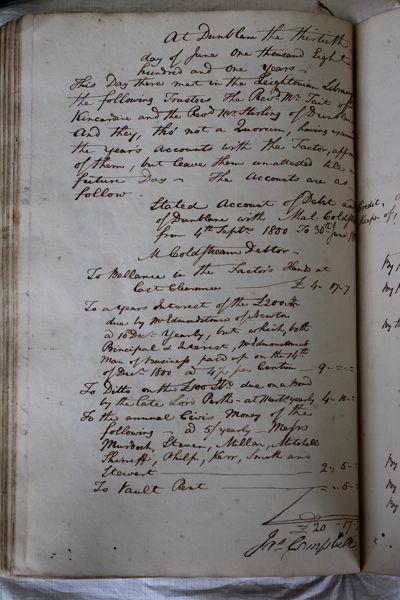 At Dunblane the thirtieth
day of June One thousand Eight
hundred and One years –
This Day there met in the Leightonian Library
the following Trustees The Revd. Mr. Tait of
Kincardine and the Revd. Mr. Stirling of Dunblane
And they, tho' not a Quorum, having
the years Accounts with the Factor,
of them, but leave them unattested till a
future Day – The Accounts are as
follow –
Stated Account of Debt and Credit,
of Dunblane with Mal: Coldstream Keeper of
from 4th Septr. 1800 To 30th June
M Coldstream Debtor –
To Ballance in the Factor's Hands at
last Clearance £ 4 17 7
To a years Interest of the £200 St.
due by Mr Edmondstone of Newton
a 10 Decr. Yearly, but which, both
Principal & Interest, Mr Edmonstone's
Man of Business paid up on the 16th
of Decr. 1800 a 4½ per Centum – 9 " – " –
To Ditto on the £100 St. due on a Bond
by the late Lord Perth – at Marts. yearly 4 10 –
To the annual Civis Money of the
following a 5/ yearly – Messrs
Murdoch, Steven, Millar, Mitchell
Shirreff, Philp, Kerr, Smith and
Stewart 2 " 5 " –
To Vault Rent – " 5 " –
£20 17 7
Jno. Campbell
By
By
By
By
By
By